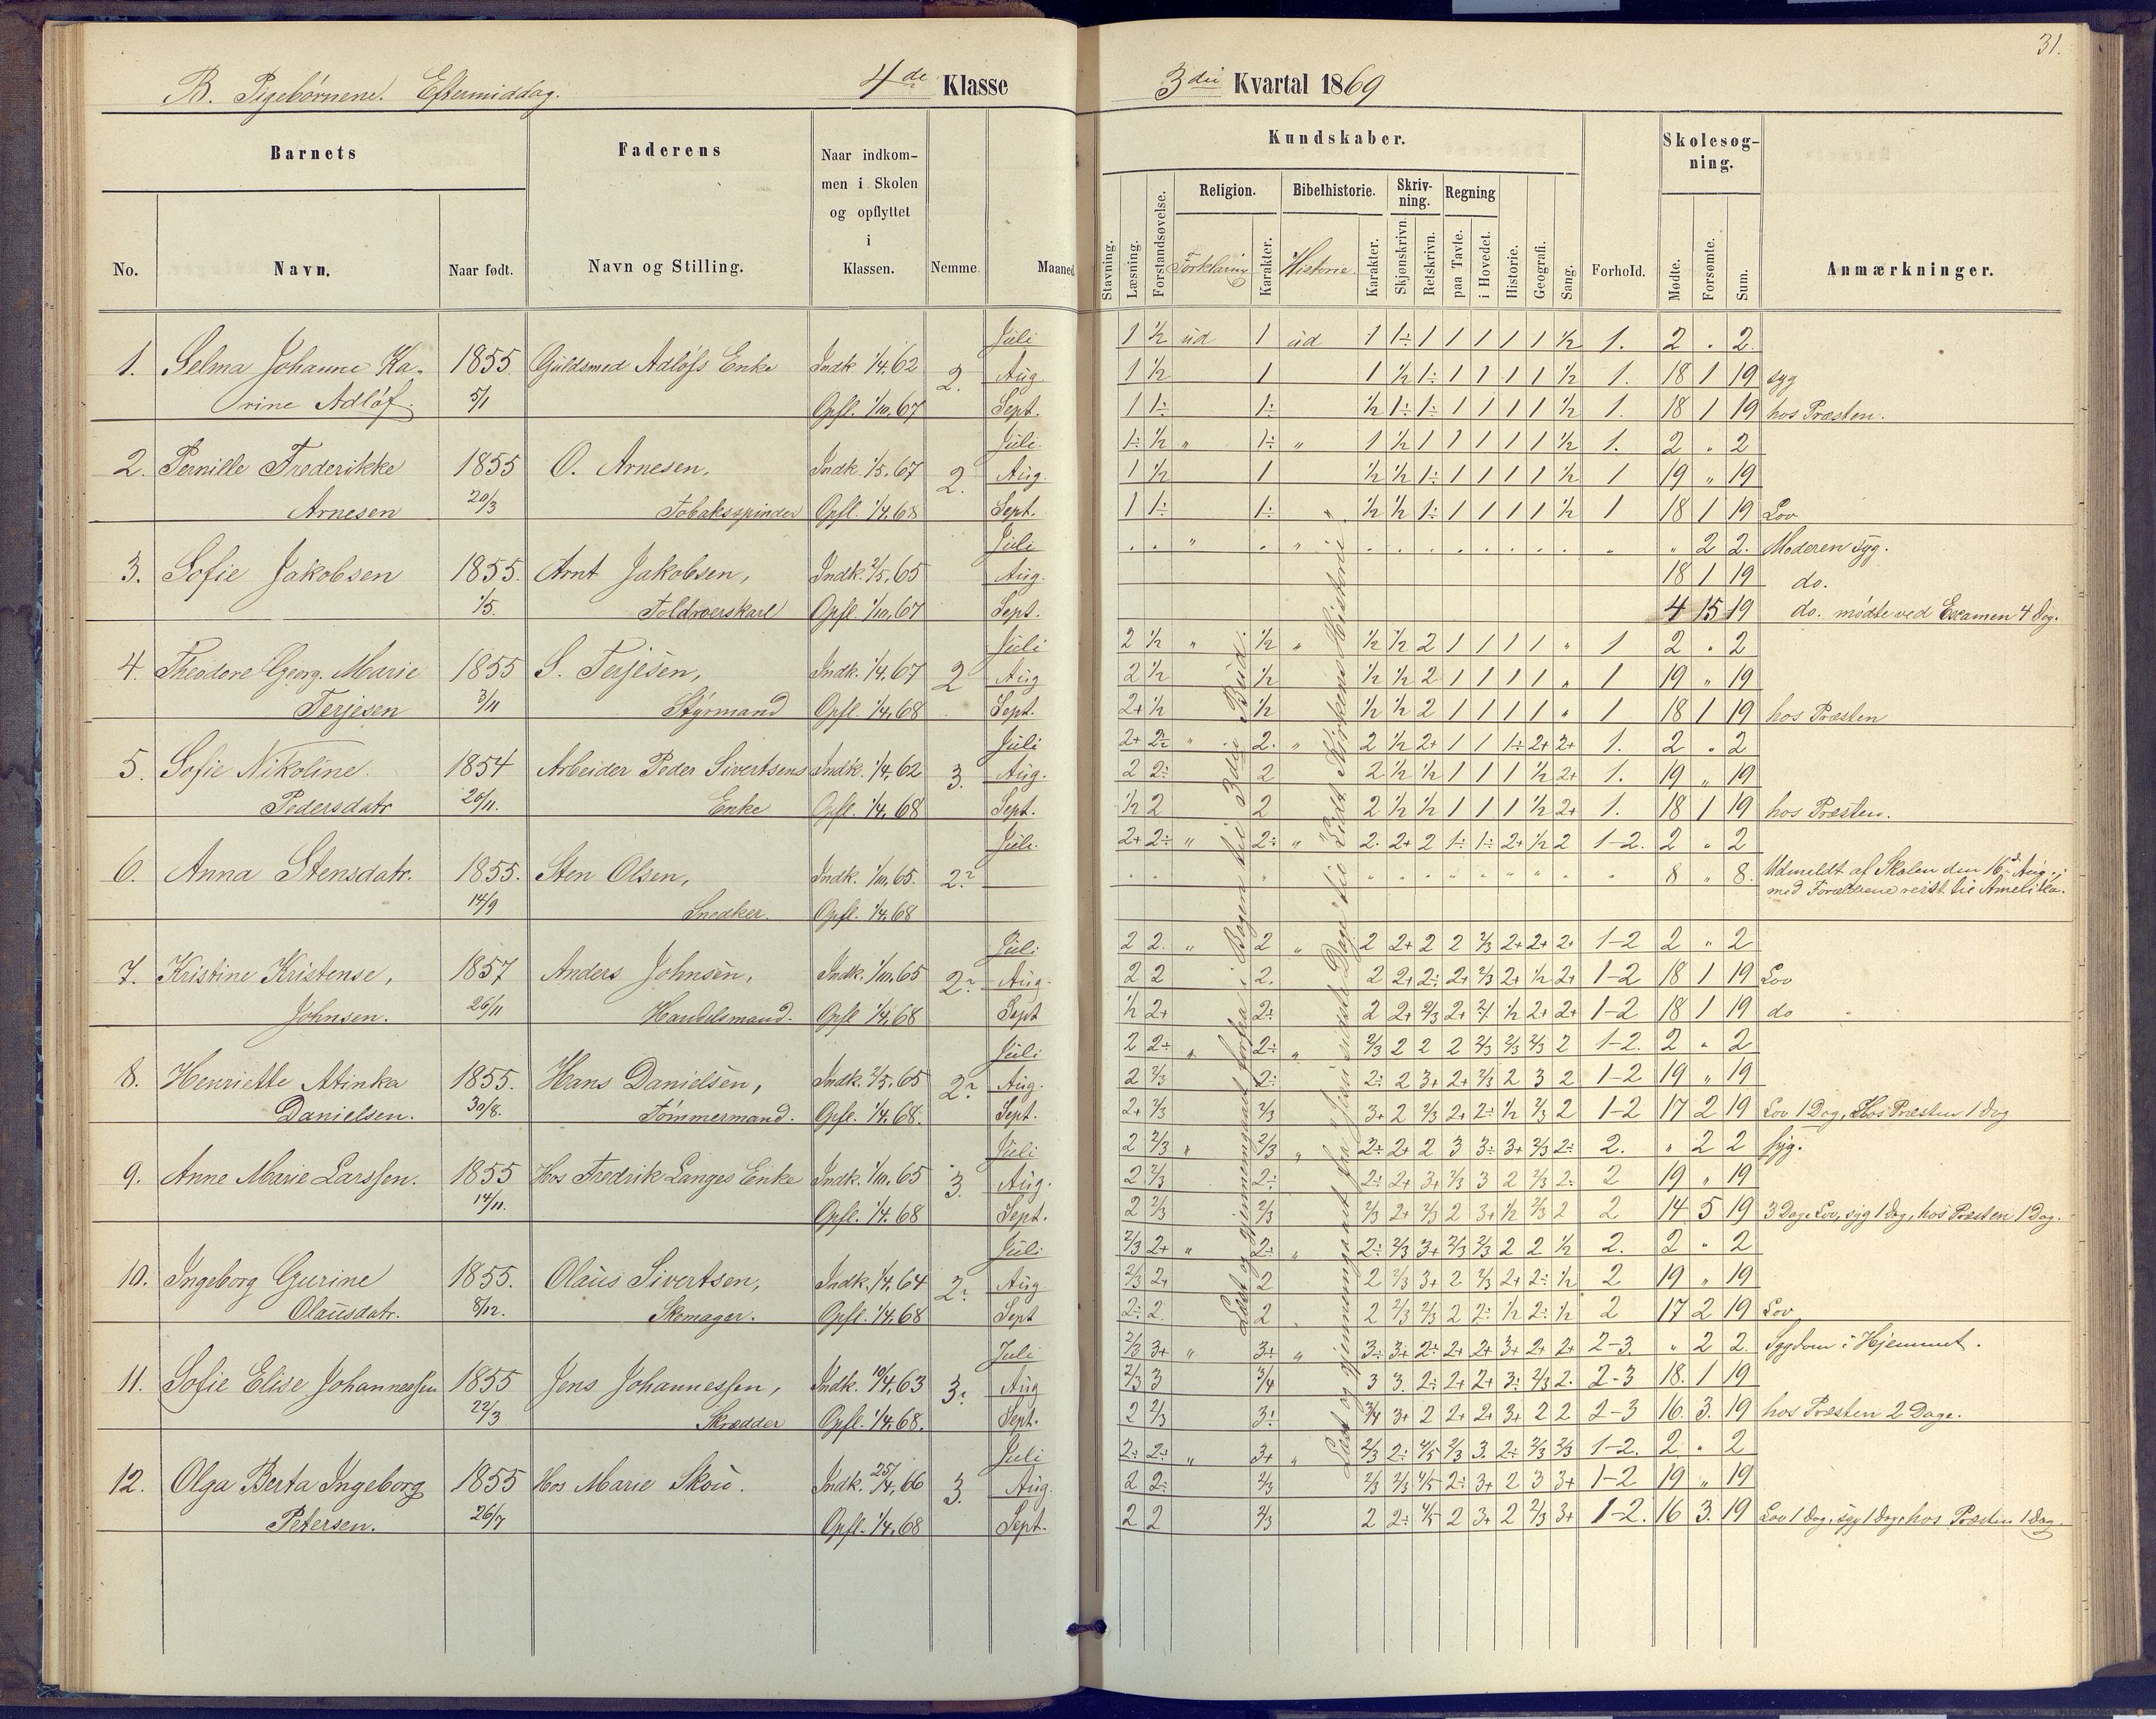 31.
B. Pigebørnene. Eftermiddag. 4de Klasse 3die Kvartal 1869
Barnets
Faderens
Naar indkom-
men i Skolen
og opflyttet
i
Klassen.
No. Navn. Naar født. Navn og Stilling. Nemme. Maaned
Kundskaber.
Skolesog-
ning.
Religion. Bibelhistorie. Skriv-
ning. Regning
Stavning. Læsning. Forstandsøvelse. Forklaring Karakter. Historie. Karakter. Skjønskrivn. Retskrivn. paa Tavle. i Hovedet. Historie. Geografi. Sang. Forhold. Mødte. Forsømte. Sum. Anmærkninger.
Juli 1 ½ ud 1 ud 1 1÷ 1 1 1 1 1 ½ 1. 2 . 2.
1. Selma Johanne Ka- 1855 Guldsmed Adløfs Enke Indk. 1/4.62 2. Aug. 1 ½ 1 1 ½ 1÷ 1 1 1 1 ½ 1. 18 1 19 syg
rine Adløf. 5/1 Opfl. 1/10.67 Sept. 1 1÷ 1÷ ½ 1÷ 1÷ 1 1 1 1 ½ 1. 18 1 19 hos Præsten.
Juli 1÷ ½ " 1÷ " 1 ½ 1 1 1 1 1 ½ 1. 2 " 2
2. Pernille Frederikke 1855 O. Arnesen, Indk. 1/5.67 2. Aug. 1 ½ 1 ½ ½ 1÷ 1 1 1 1 ½ 1 19 " 19
Arnesen 20/3 Tobaksspinder Opfl. 1/4.68 Sept. 1 1÷ 1÷ ½ ½ 1÷ 1 1 1 1 ½ 1 18 1 19 Lov
Juli . . " . " . . . . . . . . . " 2 2. Moderen syg.
3. Sofie Jakobsen 1855. Arnt Jakobsen, Indk. 2/5.65 Aug. 18 1 19 do.
1/5. Toldroerskarl Opfl. 1/10.67 Sept. 4 15 19 do. mødte ved Examen 4 Dag.
Juli 2 ½ " ½ " ½ ½ 2 1 1 1 1 " 1 2 . 2
4. Theodore Georg. Marie 1855 S. Terjesen, Indk. 1/4.67 2 Aug 2 ½ ½ ½ ½ 2 1 1 1 1 " 1 19 " 19
Terjesen 3/11 Styrmand Opfl. 1/4.68 Sept. 2+ ½ ½ ½ ½ 2 1 1 1 1 " 1 18 1 19 hos Præsten
Juli 2+ 2÷ " 2. " 2 ½ 2+ 1 1 1÷ 2+ 2+ 1. 2 . 2
5. Sofie Nikoline. 1854 Arbeider Peder Sivertsens Indk. 1/4.62 3. Aug. 2 2÷ 2 2 ½ ½ 1 1 1 ½ 2+ 1. 19 " 19
Pedersdatr 20/11. Enke Opfl. 1/4.68 Sept. ½ 2 2 2 ½ ½ 1 1 1 ½ 2+ 1. 18 1 19 hos Præsten.
Juli. 2+ 2÷ " 2÷ " 2. 2+ 2 1÷ 1÷ 2+ ½ 2 1-2. 2 " 2
6. Anna Stensdatr. 1855. Sten Olsen, Indk. 1/10.65. 2? 8 " 8. Udmeldt af Skolen den 16de Aug.;
med Forældrene reist til Amerika.
14/9 Snedker. Opfl. 1/4.68
Juli 2 2. " 2 " 2 2+ 2 2 2/3 2+ 2+ 2+ 1-2 2 " 2
7. Kristine Kristense, 1857 Anders Johnsen, Indk. 1/10.65 2? Aug. 2 2 2. 2 2+ 2÷ 2+ 2/3 2+ ½ 2+ 1-2 18 1 19 Lov
Johnsen. 26/11 Handelsmand. Opfl 1/4.68 Sept ½ 2+ 2÷ 2 2+ 2/3 2+ 2/ ½ 2+ 2+ 1-2 18 1 19 do
Juli 2 2÷ " 2÷ " 2/3 2 2 2 2/3 2/3 2/3 2 1-2. 2 " 2
8. Henriette Atinka 1855. Hans Danielsen, Indk. 2/5.65 2? Aug. 2 2/3 2÷ 2÷ 2 3+ 2+ 2/3 2 3 2 1-2 19 " 19
Danielsen. 30/8. Tømmermand. Opfl. 1/4.68. Sept. 2+ 2/3 2/3 3+ 2 2/3 2+ 2÷ ½ 2/3 2 1-2 17 2 19 Lov 1 Dag, Hos Præsten 1 Dag
Juli 2 2/3 " 2/3 " 2÷ 2+ 2 3 3÷ 3+ 2/3 2÷ 2. " 2 2 syg.
9. Anne Marie Larssen. 1855 Hos Fredrik Langes Enke Indk. 1/10.65 3. Aug. 2 2/3 2÷ 2÷ 2+ 3+ 2/3 3 2 2/3 2÷ 2 19 " 19
14/11. Opfl. 1/4.68 Sept. 2 2/3 2/3 2/3 2+ 2/3 2 3+ ½ 2/3 2 2 14 5 19 3 Dage Lov, syg 1 Dag, hos Præsten 1 Dag.
Juli 2/3 2+ " 2÷ " 2÷ 2/3 3+ 2/3 2/3 2 2 ½ 2. 2 " 2
10. Ingeborg Gurine 1855. Olaus Sivertsen, Indk. 1/4.64 2? Aug 2/3 2+ 2 2 2/3 3+ 2 2/3 2+ 2÷ ½ 2 19 " 19
Olausdatr. 8/12. Skomager. Opfl. 1/4.68 Sept 2÷ 2. 2 2 2/3 2/3 2 2÷ ½ 2÷ ½ 2 17 2 19 Lov
Juli 2/3 3+ " 3+ " 3÷ 3+ 2÷ 2+ 2+ 3+ 2+ 2+ 2-3. " 2 2. Sygdom i Hjemmet.
11. Sofie Elise Johannessen 1855 Jens Johannessen, Indk. 10/4.63 3? Aug 2/3 3 3/4 3 3. 2÷ 2+ 2+ 3÷ 2/3 2. 2-3 18. 1 19
22/3 Skrædder Opfl. 1/4.68. Sept. 2 2/3 3÷ 3/4 3+ 2 2+ 2+ 3+ 2 2 2-3 16. 3. 19 hos Præsten 2 Dage.
Juli 2÷ 2÷ " 3+ " 2/3 2÷ 4/5 2/3 3. 2÷ 2/3 2/3 1-2. 2 " 2
12. Olga Berta Ingeborg 1855 Hos Marie Skou. Indk. 25/4.66 3. Aug. 2 2÷ 2/3 2/3 2/3 4/5 2÷ 3+ 2 3 3+ 1-2 19 " 19
Petersen. 26/7 Opfl. 1/4.68 Sept. 2 2 2/3 2 2÷ 4/5 2 3+ 2 2/3 3+ 1-2. 16 3. 19 Lov 1 Dag, syg 1 Dag, hos Præsten 1 Dag.
Læst og gjennemgaaet forfra i Bogen til 3die Bud.
Læst og gjennemgaaet fra "Jesu sidste Dage" til "Lidt Kirkens Historie".